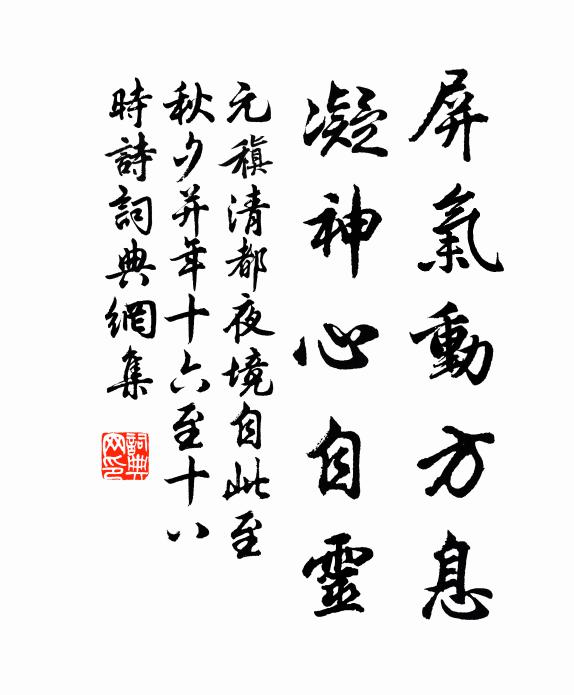 屏氣動方息
凝神心自靈
元稹清都夜境自此至
秋夕并年十六至十八
時詩詞典網集
詞典
网印